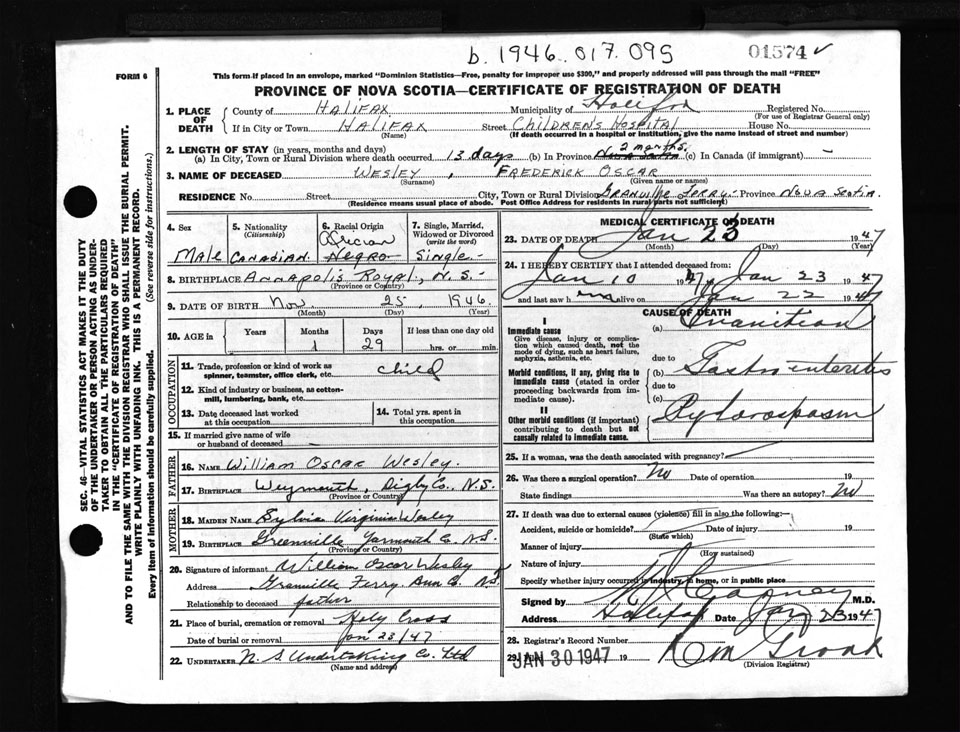 b. 1946. 017. 095
01574 ✓
FORM 6
This form if placed in an envelope, marked "Dominion Statistics—Free, penalty for improper use $300," and properly addressed will pass through the mail "FREE"
PROVINCE OF NOVA SCOTIA—CERTIFICATE OF REGISTRATION OF DEATH
1. PLACE OF DEATH County of HALIFAX Municipality of Halifax Registered No. (For use of Registrar General only)
If in City or Town HALIFAX (Name) Street CHILDREN'S HOSPITAL House No.
(If death occurred in a hospital or institution, give the name instead of street and number)
2. LENGTH OF STAY (in years, months and days)
(a) In City, Town or Rural Division where death occurred 13 days (b) In Province Nova Scotia 2 months. (c) In Canada (if immigrant) -
3. NAME OF DECEASED WESLEY, FREDERICK OSCAR
(Surname) (Given name or names)
RESIDENCE No. Street City, Town or Rural Division GRANVILLE FERRY.- Province NOVA SCOTIA.
(Residence means usual place of abode. Post Office Address for residents in rural parts not sufficient)
4. Sex Male
5. Nationality (Citizenship) CANADIAN
6. Racial Origin African Negro
7. Single, Married, Widowed or Divorced (write the word) Single.-
8. BIRTHPLACE ANNAPOLIS ROYAL, N.S.-
(Province or Country)
9. DATE OF BIRTH Nov. 25, 1946.
(Month) (Day) (Year)
10. AGE in Years Months Days If less than one day old
1 29 hrs. or min.
OCCUPATION
11. Trade, profession or kind of work as spinner, teamster, office clerk, etc. child
12. Kind of industry or business, as cotton-mill, lumbering, bank, etc.
13. Date deceased last worked at this occupation
14. Total yrs. spent in this occupation
15. If married give name of wife or husband of deceased
FATHER
16. NAME William Oscar Wesley.
17. BIRTHPLACE Weymouth, Digby Co., N.S.
(Province or Country)
MOTHER
18. MAIDEN NAME Sylvia Virginia Wesley
19. BIRTHPLACE Greenville Yarmouth Co. N.S.
(Province or Country)
20. Signature of informant William Oscar Wesley
Address Granville Ferry. Ann Co. N.S.
Relationship to deceased father
21. Place of burial, cremation or removal Holy Cross
Date of burial or removal Jan 23/47
22. UNDERTAKER N. S. Undertaking Co. Ltd
(Name and address)
MEDICAL CERTIFICATE OF DEATH
23. DATE OF DEATH Jan 23 1947
(Month) (Day) (Year)
24. I HEREBY CERTIFY that I attended deceased from:
Jan 10 1947, Jan 23 1947
and last saw him alive on Jan 22 1947
CAUSE OF DEATH
I
Immediate cause
Give disease, injury or complication which caused death, not the mode of dying, such as heart failure, asphyxia, asthenia, etc.
(a) Inanition
due to
Morbid conditions, if any, giving rise to immediate cause (stated in order proceeding backwards from immediate cause).
(b) Gastroenteritis
due to
(c)
II
Other morbid conditions (if important) contributing to death but not causally related to immediate cause.
Pylorospasm
25. If a woman, was the death associated with pregnancy?
26. Was there a surgical operation? No Date of operation 19
State findings Was there an autopsy? No
27. If death was due to external causes (violence) fill in also the following:—
Accident, suicide or homicide? Date of injury 19
(State which)
Manner of injury
(How sustained)
Nature of injury
Specify whether injury occurred in industry, in home, or in public place
Signed by M.D.
Address Halifax Date Jan 23 1947
28. Registrar's Record Number
29. JAN 30 1947 19
(Division Registrar)
SEC. 46—VITAL STATISTICS ACT MAKES IT THE DUTY
OF THE UNDERTAKER OR PERSON ACTING AS UNDER-
TAKER TO OBTAIN ALL THE PARTICULARS REQUIRED
IN THE "CERTIFICATE OF REGISTRATION OF DEATH"
AND TO FILE THE SAME WITH THE DIVISION REGISTRAR WHO SHALL ISSUE THE BURIAL PERMIT.
WRITE PLAINLY WITH UNFADING INK. THIS IS A PERMANENT RECORD.
Every item of information should be carefully supplied. (See reverse side for instructions.)